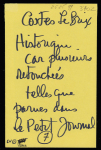 Contes le Bux
Historique.
Car plusieurs
retouchées
telles que
parues dans
le Petit Journal
7